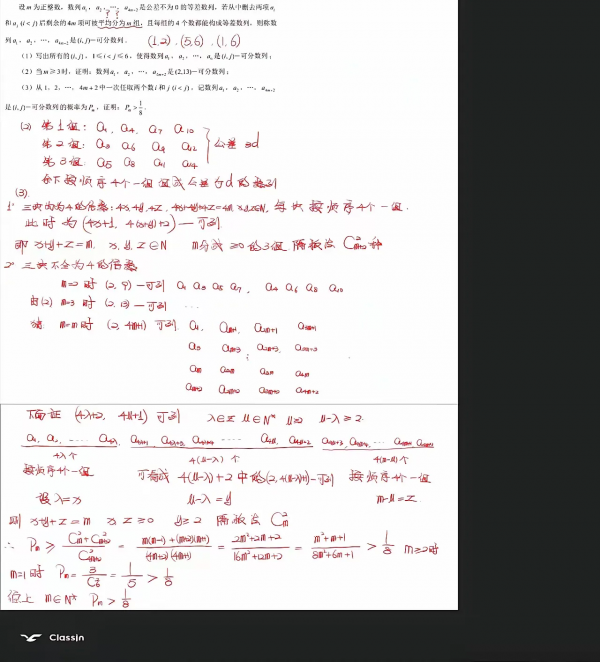 设 m 为正整数，数列 a₁，a₂，…，a₄ₘ₊₂ 是公差不为 0 的等差数列，若从中删去两项 aᵢ
和 aⱼ (i < j) 后剩余的 4m 项可被平均分为 m 组，且每组的 4 个数都能构成等差数列，则称数
列 a₁，a₂，…，a₄ₘ₊₂ 是 (i, j)－可分数列．
(1,2), (5,6), (1,6)
（1）写出所有的 (i, j)，1≤i<j≤6，使得数列 a₁，a₂，…，a₆ 是 (i, j)－可分数列；
（2）当 m≥3 时，证明：数列 a₁，a₂，…，a₄ₘ₊₂ 是 (2,13)－可分数列；
（3）从 1，2，…，4m+2 中一次任取两个数 i 和 j (i < j)，记数列 a₁，a₂，…，a₄ₘ₊₂
是 (i, j)－可分数列的概率为 Pₘ，证明：Pₘ > 1/8．
(2) 第1组: a₁, a₄, a₇ a₁₀
第2组: a₃ a₆ a₉ a₁₂ } 公差3d
第3组: a₅ a₈ a₁₁ a₁₄
余下按顺序4个一组 组成公差为d的数列
(3)
1° 三块均为4的倍数: 4x, 4y, 4z, 4x+4y+4z=4m x,y,z∈N, 每块按顺序4个一组.
此时为 (4x+1, 4(x+y)+2) — 可列
即 x+y+z=m, x, y, z∈N m分成≥0的3组 隔板法 C²ₘ₊₂ 种
2° 三块不全为4的倍数
m=2 时 (2, 9) — 可列 a₁ a₃ a₅ a₇, a₄ a₆ a₈ a₁₀
由(2) m=3 时 (2, 13) — 可列 …
猜 m=m时 (2, 4m+1) 可列 a₁, aₘ₊₁, a₂ₘ₊₁ a₃ₘ₊₁
a₃ aₘ₊₃ a₂ₘ₊₃, a₃ₘ₊₃
aₘ a₂ₘ a₃ₘ a₄ₘ
aₘ₊₂ a₂ₘ₊₂ a₃ₘ₊₂ a₄ₘ₊₂
下面证 (4λ+2, 4μ+1) 可列 λ∈Z μ∈N* μ≥2 μ-λ≥2.
4λ个 4(μ-λ)个 4(m-μ)个
按顺序4个一组 可看成 4(μ-λ)+2 中的(2, 4(μ-λ)+1)-可列 按顺序4个一组
设 λ=x μ-λ=y m-μ=z.
则 x+y+z=m x, z≥0 y≥2 隔板法 C²ₘ
∴ Pₘ ≥ (C²ₘ+C²ₘ₊₂)/C²₄ₘ₊₂ = (m(m-1)+(m+2)(m+1))/((4m+2)(4m+1)) = (2m²+2m+2)/(16m²+12m+2) = (m²+m+1)/(8m²+6m+1) > 1/8 m≥2时
m=1时 Pₘ = 3/C²₆ = 1/5 > 1/8
综上 m∈N* Pₘ > 1/8
ClassIn